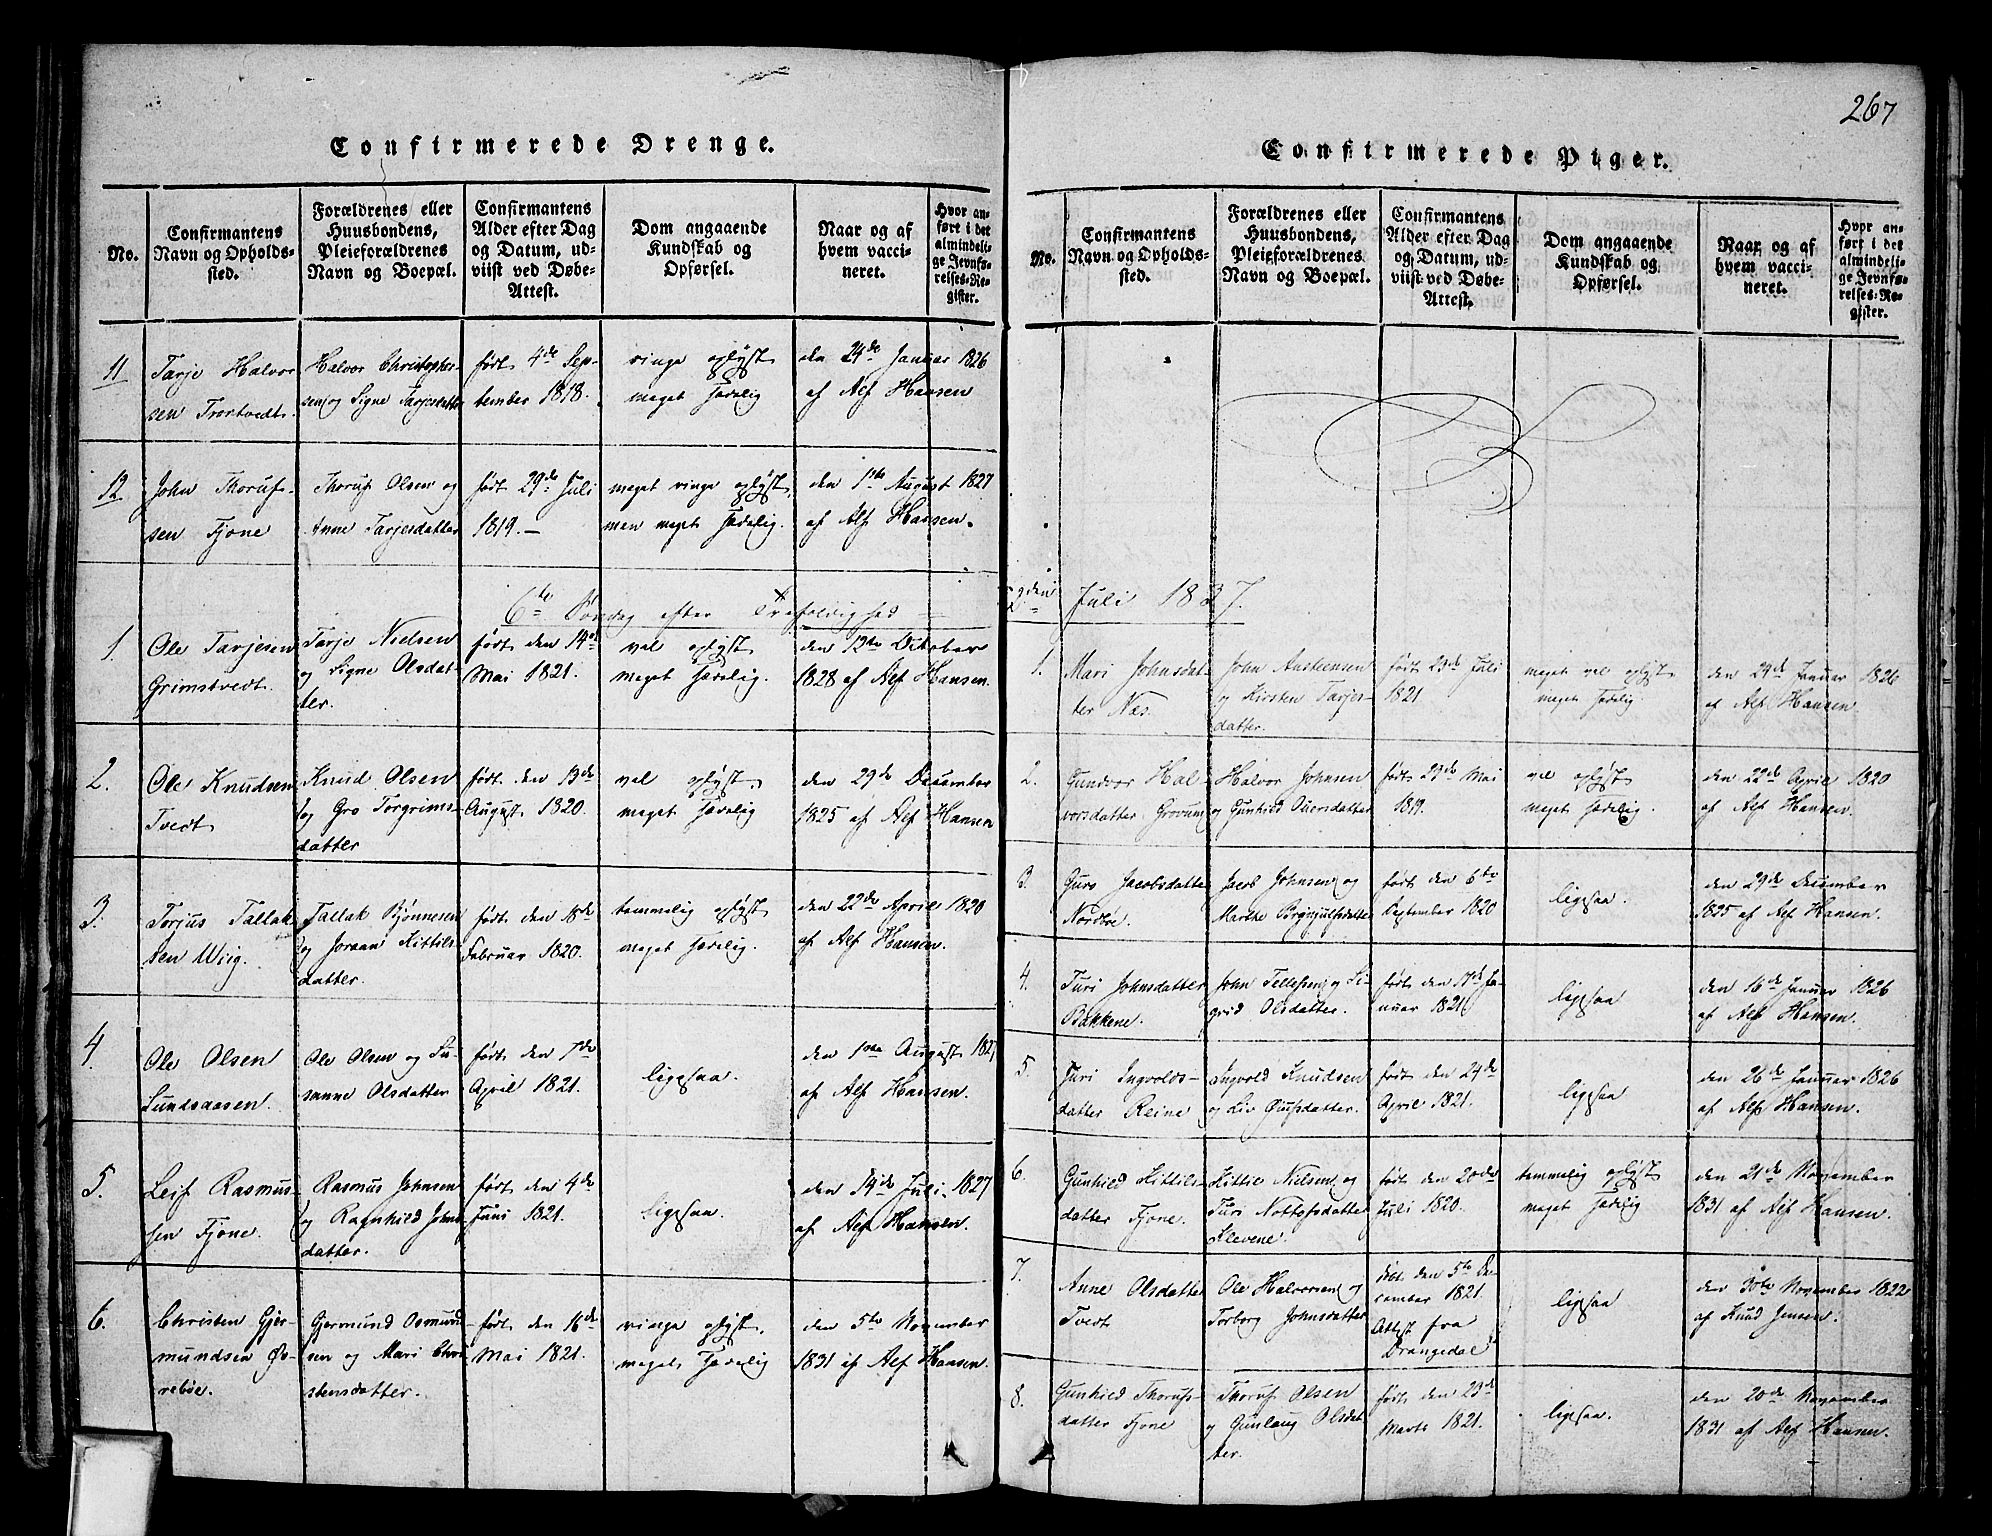 267
Confirmerede Drenge.
No.
Confirmantens
Navn og Opholds-
sted.
Forældrenes eller
Huusbondens,
Pleieforældrenes
Navn og Boepæl.
Confirmantens
Alder efter Dag
og Datum, ud-
viist ved Døbe-
Attest.
Dom angaaende
Kundskab og
Opførsel.
Naar og af
hvem vacci-
neret.
Hvor an-
føre i det
almindeli-
ge Jevnfø-
relses-Re-
gister.
11
Tarje Halvor
sen Trortvedt.
Halvor Christopher-
sen og Signe Tarjesdatter
født 4de Sep-
tember 1818.
ringe oplyst
meget sædelig
den 24de Januar 1826
af Alf Hansen
12
John Thorufs-
sen Fjone
Thoruf Olsen og
Anne Tarjesdatter
født 29de Juli
1819. —
meget ringe oplyst,
men meget sædelig.
den 1ste August 1827
af Alf Hansen.
6te Søndag efter Trefoldighed
1.
Ole Tarjesen
Grimstvedt.
Tarje Nielsen
og Signe Olsdat-
ter.
født den 14de
Mai 1821.
vel oplyst
meget sædelig.
den 12te October
1828 af Alf Hansen.
2.
Ole Knudsen
Tvedt
Knud Olsen
og Gro Torgrims-
datter
født den 13de
August 1820.
vel oplyst,
meget sædelig
den 29de December
1825 af Alf Hansen
3.
Torjus Tallak
sen Wiig.
Tallak Bjønnesen
og Joraan Kittils-
datter.
født den 18de
Februar 1820.
temmelig oplyst
meget sædelig.
den 22de April 1820
af Alf Hansen.
4.
Ole Olsen
Sundsaasen.
Ole Olsen og Su-
sanne Olsdatter
født den 7de
April 1821.
ligesaa.
den 1ste August 1827
af Alf Hansen.
5.
Leif Rasmus-
sen Fjone.
Rasmus Johnsen
og Ragnhild Johns
datter.
født den 4de
Juni 1821.
ligesaa.
den 14de Juli 1827
af Alf Hansen.
6.
Christen Gjer-
mundsen Øv-
rebøe.
Gjermund Osmund-
sen og Mari Chri-
stensdatter.
født den 16de
Mai 1821.
ringe oplyst,
meget sædelig
den 5te November
1831 af Alf Hansen.
Confirmerede Piger.
No.
Confirmantens
Navn og Opholds-
sted.
Forældrenes eller
Huusbondens,
Pleieforældrenes
Navn og Boepæl.
Confirmantens
Alder efter Dag
og Datum, ud-
viist ved Døbe-
Attest.
Dom angaaende
Kundskab og
Opførsel.
Naar og af
hvem vacci-
neret.
Hvor an-
føre i det
almindeli-
ge Jevnfø-
relses-Re-
gister.
Juli 1837.
1.
Mari Johnsdat-
ter Næs.
John Austeensen
og Kirsten Tarjes-
datter.
født 23de Juli
1821
meget vel oplyst
meget sædelig.
den 24de Januar 1826
af Alf Hansen.
2.
Gundvor Hal-
vorsdatter Grovum
Halvor Johnsen
og Gunhild Oversdatter
født 27de Mai
1819.
vel oplyst
meget sædelig.
den 22de April 1820
af Alf Hansen.
3.
Guro Jacobsdatter
Nordbøe.
Jacob Johnsen og
Marthe Børgjulfsdatter
født den 6te
September 1820
ligesaa.
den 29de December
1825 af Alf Hansen.
4.
Turi Johnsdatter
Bakkene.
John Tellefsen og Si-
grid Olsdatter.
født den 17de Ja-
nuar 1821
ligesaa
den 16de Januar 1826
af Alf Hansen.
5
Turi Ingvolds-
datter Reine
Ingvold Knudsen
og Liv Gjufsdatter.
født den 24de
April 1821.
ligesaa
den 26de Januar 1826
af Alf Hansen.
6.
Gunhild Kittils-
datter Fjone.
Kittil Nielsen og
Turi Nottofsdatter
Klevene.
født den 20de
Juli 1820.
temmelig oplyst
meget sædelig
den 21de November
1831 af Alf Hansen.
7.
Anne Olsdatter
Tvedt
Ole Halvorsen og
Torborg Johnsdatter
født den 5te De-
cember 1821.
Attest fra
Drangedal
ligesaa
den 30te November 1822
af Knud Jensen.
8.
Gunhild Thorufs-
datter Fjone
Thoruf Olsen
og Gunlaug Olsdat
ter.
født den 23de
Marts 1821.
ligesaa.
den 20de November
1831 af Alf Hansen.